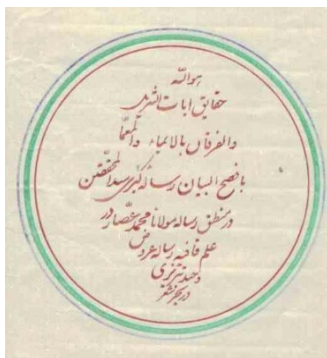 هوالله
حقایق ایات الشریف
والفرقان بالایماء والمعما
بافصح البیان رساله کبری سید المحققین
در منطق رساله مولانا محمد عصار در
علم قافیه رساله عروض
وحید تبریزی
در بحر شعر